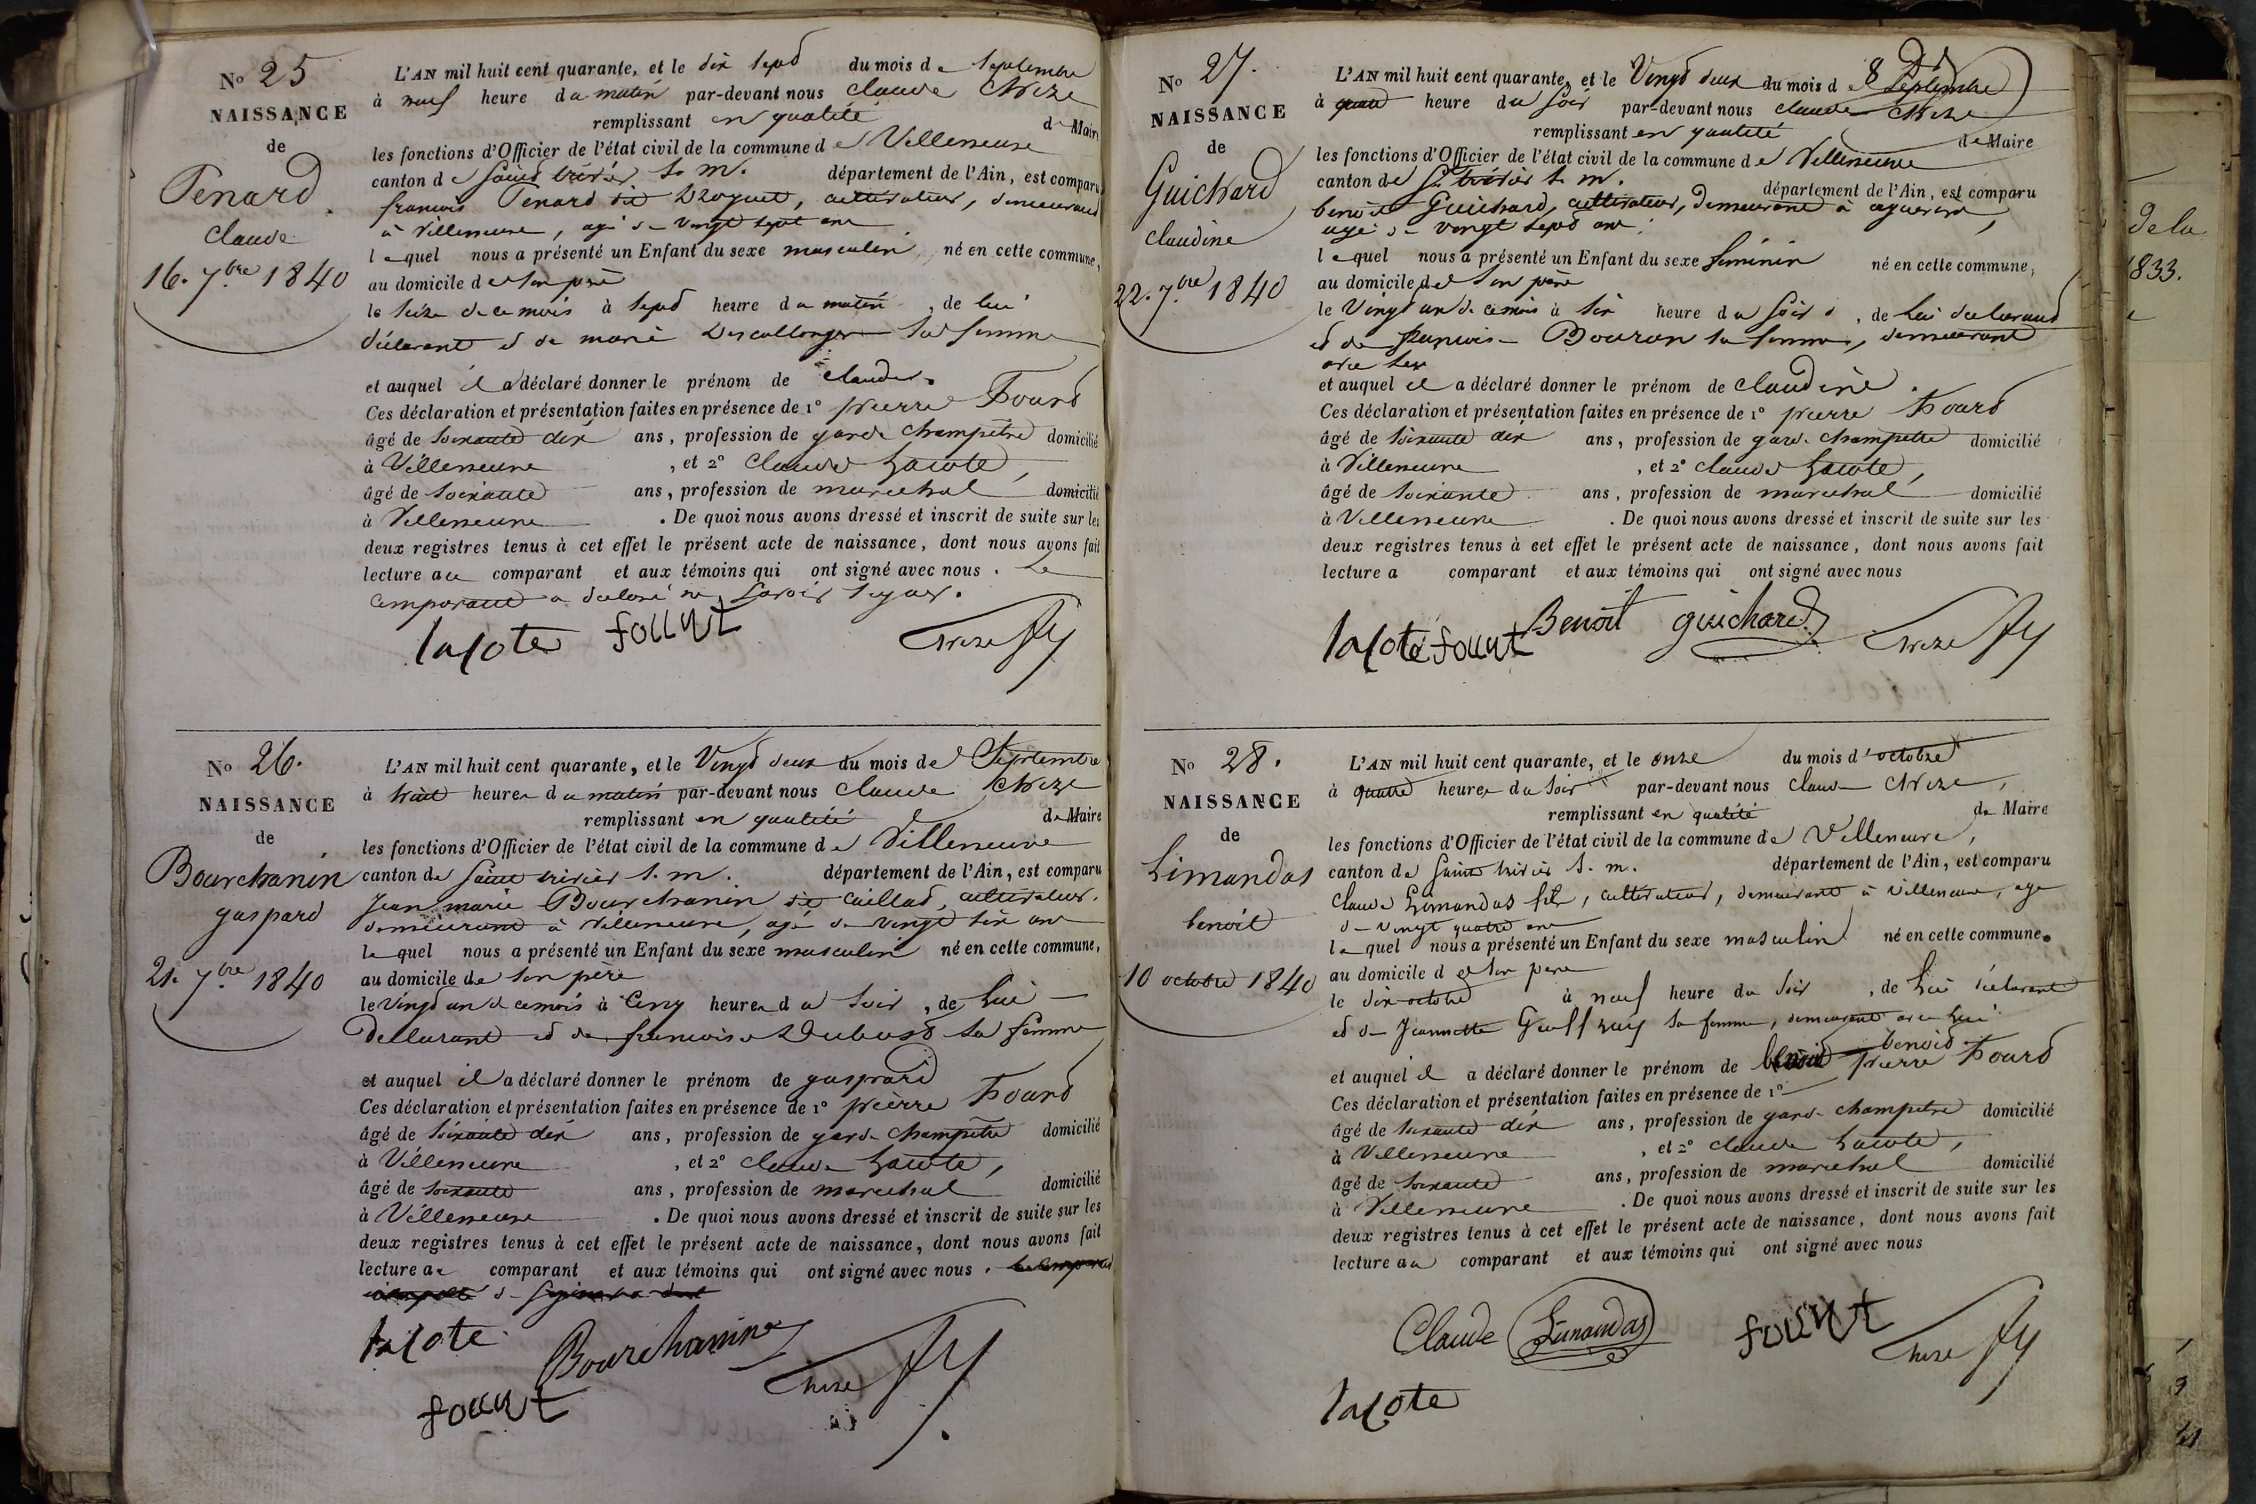 N° 25
NAISSANCE
de
Penard
Claude
16. 7.bre 1840
L'AN mil huit cent quarante, et le dix sept du mois de septembre
à neuf heure du matin par-devant nous Claude Chize
remplissant en qualité de Maire
les fonctions d'Officier de l'état civil de la commune de Villeneuve
canton de Saint trivier s. m. département de l'Ain, est comparu
francois Penard dit Droguet, cultivateur, demeurant
à Villeneuve, agé de vingt sept ans
lequel nous a présenté un Enfant du sexe masculin né en cette commune,
au domicile de son père
le seize de ce mois à sept heure du matin, de lui
déclarant et de marie Descollonges sa femme
et auquel il a déclaré donner le prénom de claude.
Ces déclaration et présentation faites en présence de 1° pierre Fourt
âgé de soixante dix ans, profession de garde champetre domicilié
à Villeneuve, et 2° Claude Lacote,
âgé de soixante ans, profession de marechal domicilié
à Villeneuve. De quoi nous avons dressé et inscrit de suite sur les
deux registres tenus à cet effet le présent acte de naissance, dont nous avons fait
lecture au comparant et aux témoins qui ont signé avec nous. Le
comparant a declaré ne savoir signer.
lacote fourt Chize
N° 26.
NAISSANCE
de
Bourchanin
gaspard
21. 7.bre 1840
L'AN mil huit cent quarante, et le Vingt deux du mois de Septembre
à huit heures du matin par-devant nous Claude Chize
remplissant en qualité de Maire
les fonctions d'Officier de l'état civil de la commune de Villeneuve
canton de Saint trivier s. m. département de l'Ain, est comparu
Jean marie Bourchanin dit Caillat, cultivateur,
demeurant à Villeneuve, agé de vingt six ans
lequel nous a présenté un Enfant du sexe masculin né en cette commune,
au domicile de son père
le Vingt un de ce mois à Cinq heures du soir, de lui
declarant et de francoise Dubost sa femme
et auquel il a déclaré donner le prénom de gaspard
Ces déclaration et présentation faites en présence de 1° pierre Fourt
âgé de soixante dix ans, profession de garde champetre domicilié
à Villeneuve, et 2° Claude Lacote,
âgé de soixante ans, profession de marechal domicilié
à Villeneuve. De quoi nous avons dressé et inscrit de suite sur les
deux registres tenus à cet effet le présent acte de naissance, dont nous avons fait
lecture au comparant et aux témoins qui ont signé avec nous.
lacote Bourchanin Chize
fourt
N° 27.
NAISSANCE
de
Guichard
Claudine
22. 7.bre 1840
L'AN mil huit cent quarante, et le Vingt deux du mois de Septembre
à quatre heure du soir par-devant nous Claude Chize
remplissant en qualité de Maire
les fonctions d'Officier de l'état civil de la commune de Villeneuve
canton de St. trivier s. m. département de l'Ain, est comparu
benoit Guichard, cultivateur, demeurant à
agé de vingt sept ans,
lequel nous a présenté un Enfant du sexe féminin né en cette commune,
au domicile de son père
le Vingt un de ce mois à six heure du soir, de lui declarant
et de Bouron sa femme, demeurant
avec lui
et auquel il a déclaré donner le prénom de claudine.
Ces déclaration et présentation faites en présence de 1° pierre Fourt
âgé de soixante dix ans, profession de garde champetre domicilié
à Villeneuve, et 2° Claude Lacote,
âgé de soixante ans, profession de marechal domicilié
à Villeneuve. De quoi nous avons dressé et inscrit de suite sur les
deux registres tenus à cet effet le présent acte de naissance, dont nous avons fait
lecture a comparant et aux témoins qui ont signé avec nous
lacote fourt Benoit guichard Chize
N° 28.
NAISSANCE
de
Limandas
benoit
10 octobre 1840
L'AN mil huit cent quarante, et le onze du mois d'octobre
à quatre heures du soir par-devant nous Claude Chize,
remplissant en qualité de Maire
les fonctions d'Officier de l'état civil de la commune de Villeneuve,
canton de Saint trivier s. m. département de l'Ain, est comparu
Claude Limandas fils, cultivateur, demeurant à Villeneuve, agé
de vingt quatre ans
lequel nous a présenté un Enfant du sexe masculin né en cette commune.
au domicile de son père
le dix octobre à neuf heure du soir, de lui déclarant
et de Jeannette Geoffray sa femme, demeurant avec lui
et auquel il a déclaré donner le prénom de benoit
Ces déclaration et présentation faites en présence de 1° pierre Fourt
âgé de soixante dix ans, profession de garde champetre domicilié
à Villeneuve, et 2° Claude Lacote,
âgé de soixante ans, profession de marechal domicilié
à Villeneuve. De quoi nous avons dressé et inscrit de suite sur les
deux registres tenus à cet effet le présent acte de naissance, dont nous avons fait
lecture au comparant et aux témoins qui ont signé avec nous
Claude Limandas fourt Chize
lacote
de la
1833.